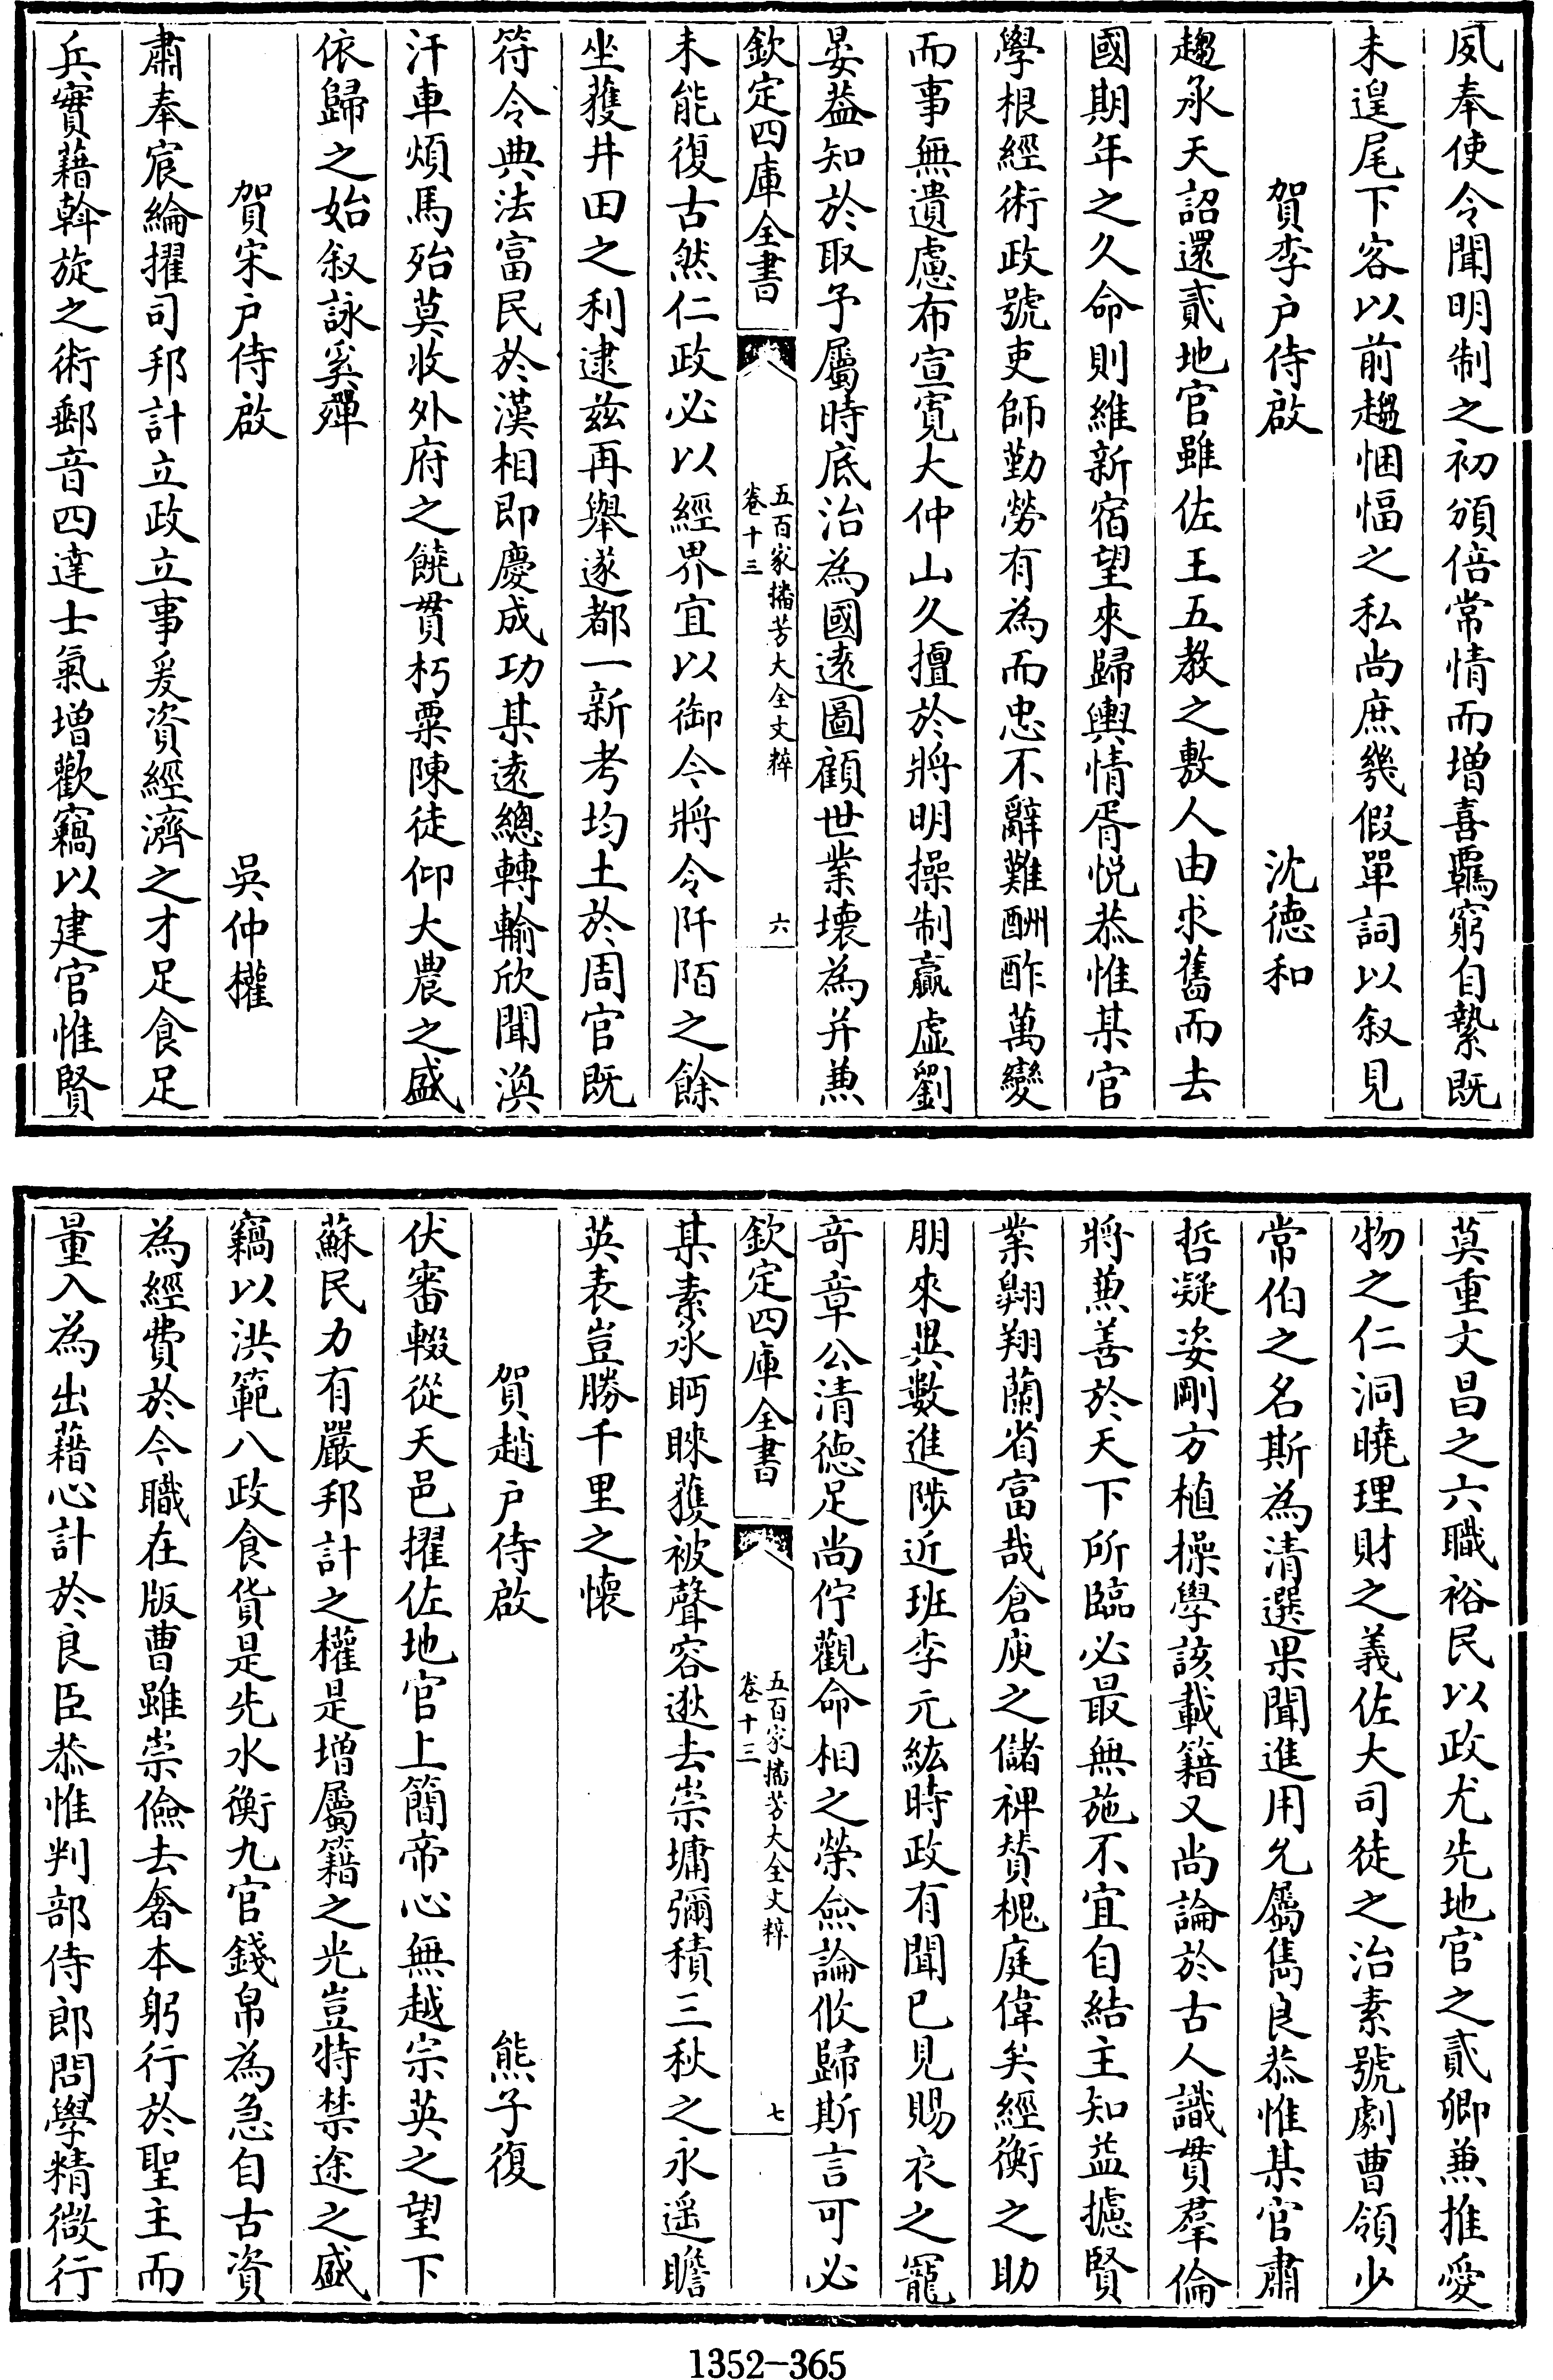 夙奉使令聞明制之初頒倍常情而增喜羈窮自縶既
未遑尾下客以前趨悃愊之私尚庶幾假單詞以叙見
賀李户侍啟　沈德和
趨承天詔還貳地官雖佐王五教之敷人由求舊而去
國期年之久命則維新宿望來歸輿情胥悦恭惟某官
學根經術政號吏師勤勞有為而忠不辭難酬酢萬變
而事無遺慮布宣寛大仲山久擅於將明操制贏虛劉
晏益知於取予屬時底治為國遠圖顧世業壊為并兼
欽定四庫全書　五百家播芳大全文粹　卷十三　六
未能復古然仁政必以經界宜以御今將令阡陌之餘
坐獲井田之利逮兹再舉遂都一新考均土於周官既
符令典法富民於漢相即慶成功某遠總轉輸欣聞渙
汗車煩馬殆莫收外府之饒貫朽粟陳徒仰大農之盛
依歸之始叙詠奚殫
賀宋户侍啟　吳仲權
肅奉宸綸擢司邦計立政立事爰資經濟之才足食足
兵實藉斡旋之術郵音四達士氣增歡竊以建官惟賢
莫重文昌之六職裕民以政尤先地官之貳卿兼推愛
物之仁洞曉理財之義佐大司徒之治素號劇曹領少
常伯之名斯為清選果聞進用允屬雋良恭惟某官肅
哲凝姿剛方植操學該載籍又尚論於古人識貫羣倫
將兼善於天下所臨必最無施不宜自結主知益攄賢
業翺翔蘭省富哉倉庾之儲裨賛槐庭偉矣經衡之助
朋來異數進陟近班李元紘時政有聞已見賜衣之寵
奇章公清德足尚佇觀命相之榮僉論攸歸斯言可必
欽定四庫全書　五百家播芳大全文粹　卷十三　七
某素承眄睞獲被聲容逖去崇墉彌積三秋之永遥瞻
英表豈勝千里之懐
賀趙户侍啟　熊子復
伏審輟從天邑擢佐地官上簡帝心無越宗英之望下
蘇民力有嚴邦計之權是增屬籍之光豈特禁途之盛
竊以洪範八政食貨是先水衡九官錢帛為急自古資
為經費於今職在版曹雖崇儉去奢本躬行於聖主而
量入為出藉心計於良臣恭惟判部侍郎問學精微行
1352-365